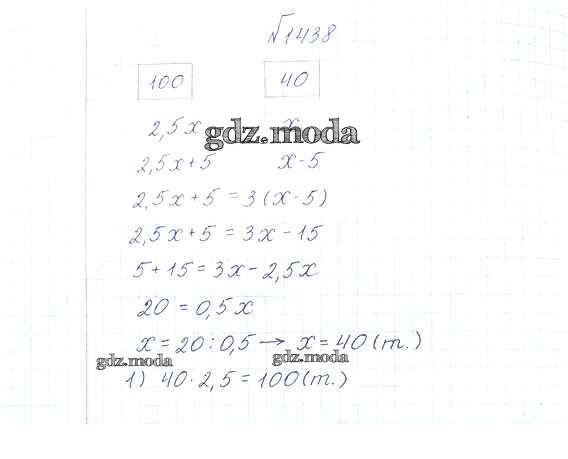 №1438
100 40
2,5x x
gdz.moda
2,5x+5 x-5
2,5x+5=3(x-5)
2,5x+5=3x-15
5+15=3x-2,5x
20=0,5x
x=20:0,5→x=40(т.)
gdz.moda gdz.moda
1) 40·2,5=100(т.)